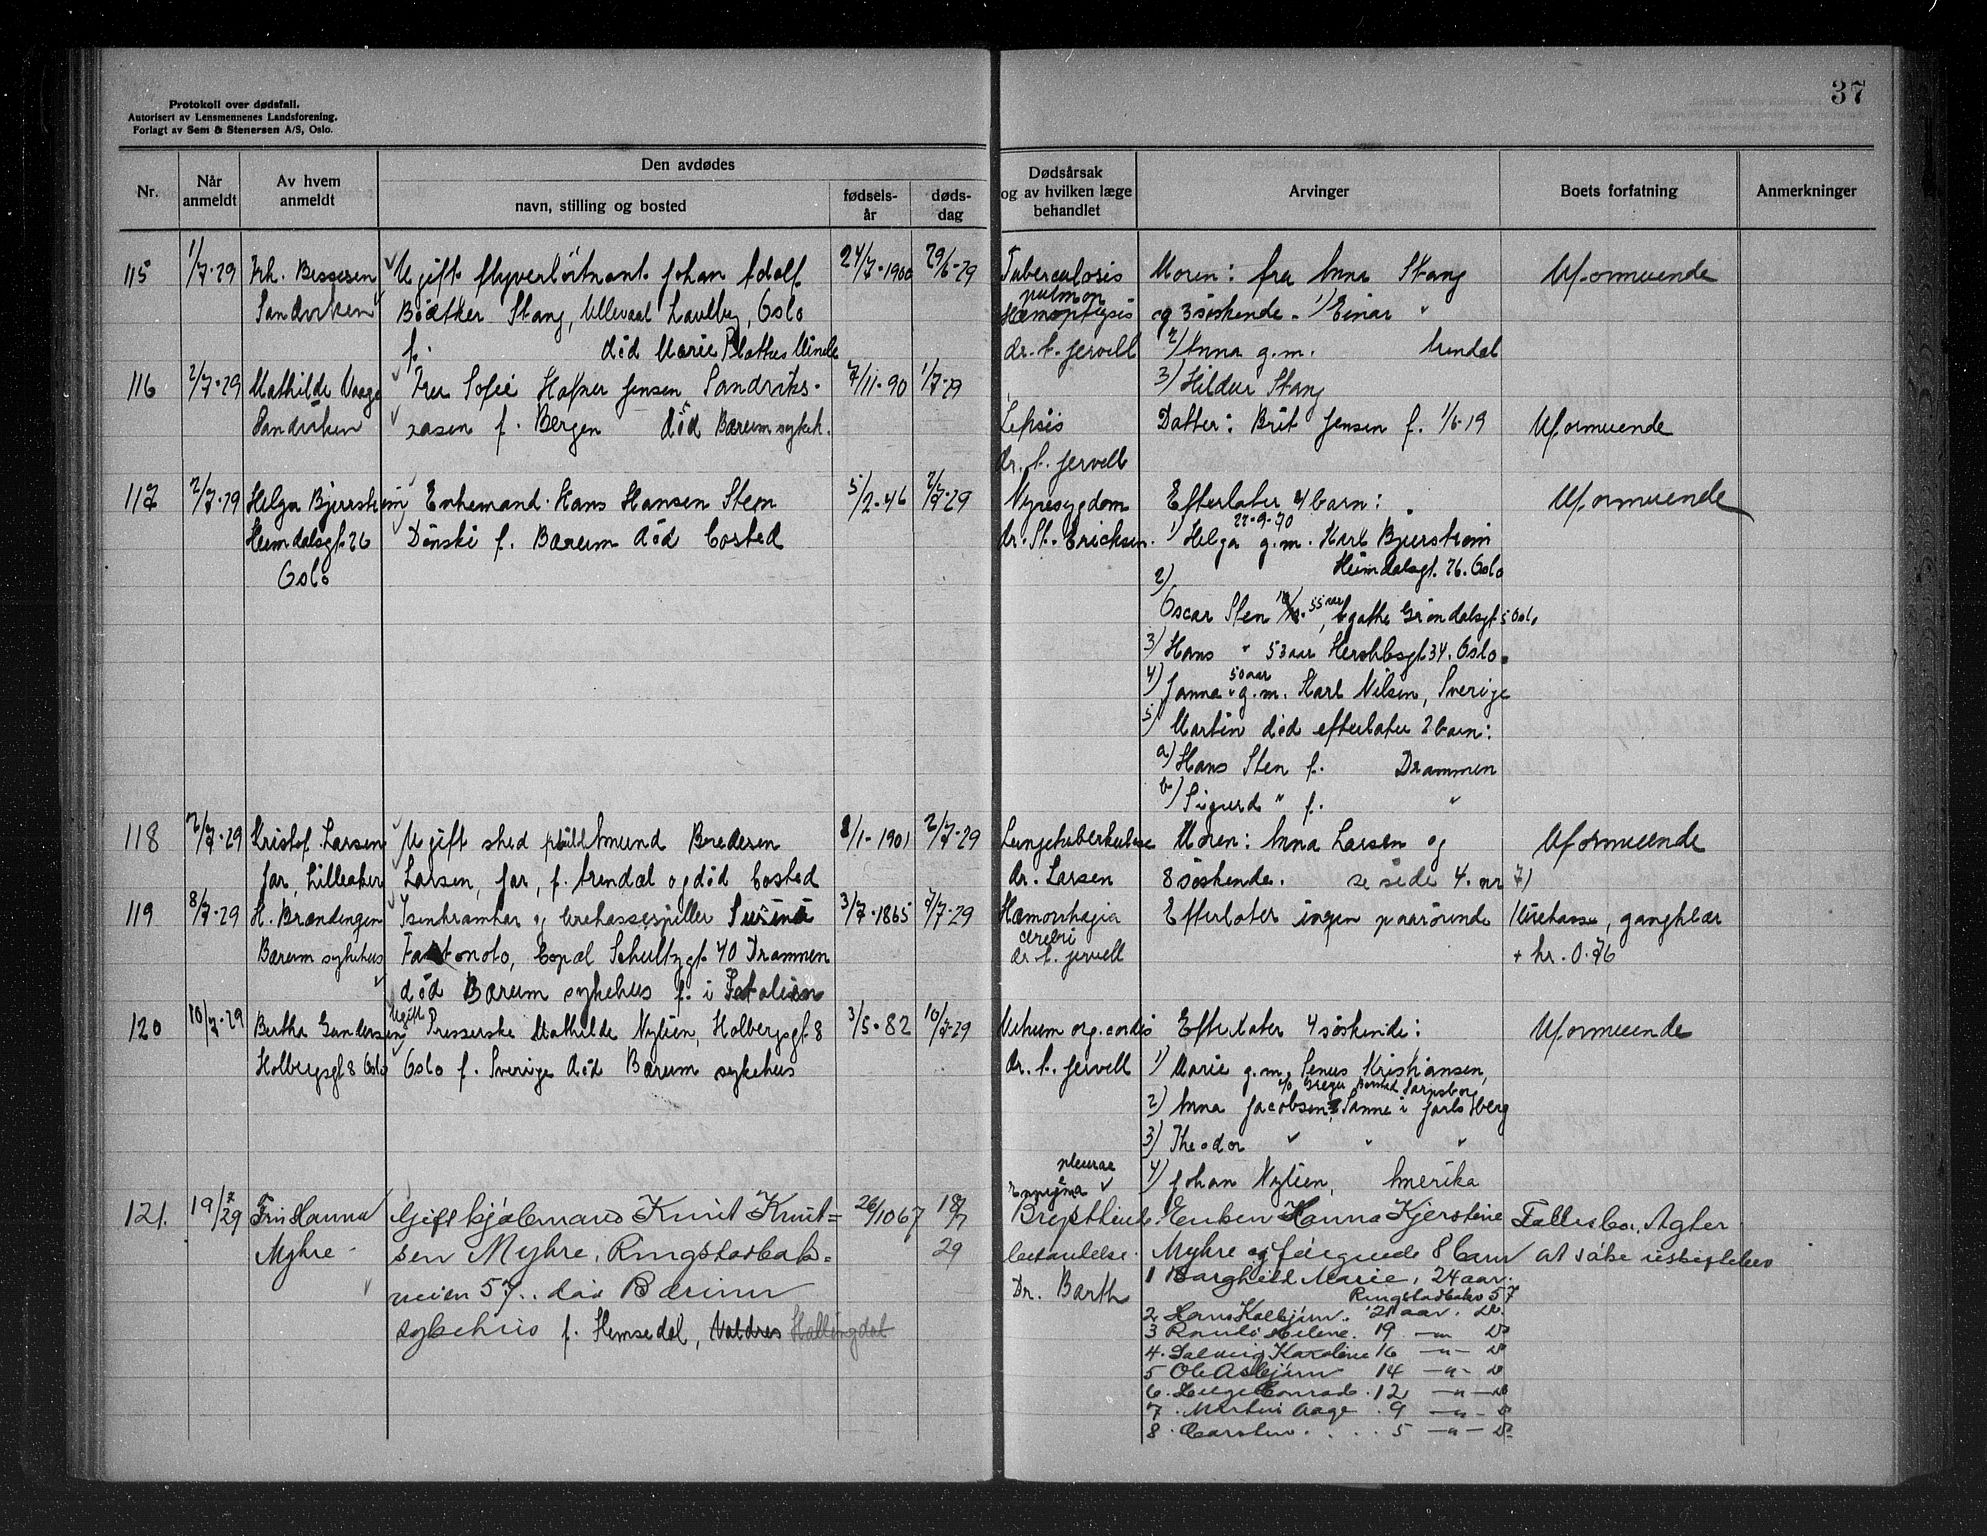 37
Protokoll over dødsfall.
Autorisert av Lensmennenes Landsforening.
Forlagt av Sem & Stenersen A/S, Oslo.
Nr.
Når anmeldt
Av hvem anmeldt
Den avdødes
navn, stilling og bosted
fødsels-år
døds-dag
Dødsårsak og av hvilken læge behandlet
Arvinger
Boets forfatning
Anmerkninger
115 1/7-29
Sandviken
Ugift flyverløitnant Johan Adolf
Bødtker Stang, Ullevaal Oslo
f. død Marie Plathes Minde
24/7-1900 29/6-29
Tuberculosis
pulmon
Hæmoptysis
dr. A. Jervell
Moren: fru Anna Stang
og 3 søskende. 1) Einar "
2) Anna g.m. Arendal
3) Hildur Stang
Uformuende
116 2/7-29 Mathilde Vaage
Sandviken
Fru Sofie Hafner Jensen Sandviks-
aasen f. Bergen død Bærum sykeh.
7/11-90 1/7-29
Sepsis
dr. A. Jervell
Datter: Brit Jensen f. 1/6-19
Uformuende
117 2/7-29 Helga Bjurstrøm
Heimdalsgt. 26
Oslo
Enkemand Hans Hansen Sten
Dønski f. Bærum død bosted
5/2-46 2/7-29
Nyresygdom
dr. St. Ericksen.
Efterlater 4 barn:
22-9-70
1) Helga g.m. Karl Bjurstrøm
Heimdalsgt. 26. Oslo
2)
Oscar Sten 55 aar, Agathe Grøndalsgt 5 Oslo
3) Hans " 53 aar 34. Oslo.
50 aar
4) Janna g.m. Karl Nilsen, Sverige
5) Martin død efterlater 2 barn:
a) Hans Sten f. Drammen
b) Sigurd " f. "
Uformuende
118 2/7-29 Kristof. Larsen
Jar, Lilleaker
Ugift Amund Brede
Larsen, Jar, f. Arendal og død bosted
8/1-1901 2/7-29
Lungetuberkulose
dr. Larsen
Moren: Anna Larsen og
8 søskende. se side 4. nr 7)
Uformuende
119 8/7-29 H. Brændengen
Bærum sykehus
Isenkramhar og lirekassespiller
Schultzgt. 40 Drammen
død Bærum sykehus f. i Italien
3/7-1865 7/7-29
Hæmorrhagia
cerebri
dr. A. Jervell
Efterlater ingen paarørende
Lirekasse, gangklær
+ kr. 0.76
120 10/7-29 Bertha Gundersen
Holbergsgt 8 Oslo
Ugift
Presserske Mathilde Nylien, Holbergsgt. 8
Oslo f. Sverige død Bærum sykehus
3/5-82 10/7-29
Vitium org. cordis
dr. A. Jervell
Efterlater 4 søskende:
1) Marie g.m. Senus Kristiansen,
2) Anna Jacobsen, Sanne i Jarlsberg
3) Theodor " " "
4) Johan Nylien, Amerika
Uformuende
121. 19/7 29 Fru Hanna
Myhre
Gift Knut Knut=
sen Myhre, Ringstadbak=
veien 57. død Bærum
sykehus f. Hemsedal, Valdres Hallingdal
26/10 67 18/7 29
pleurae
behandelse.
Dr. Barth
Enken Hanna Kjerstine
Myhre og følgende 8 barn
1 Borghild Marie, 24 aar.
Ringstadbakv 57
2 Hans Kolbjørn. 21 aar. do.
3 Helene. 19 —"— do
4. Solveig Karoline 16 —"— do
5 Ole Asbjørn 14 —"— do
6. Conrad. 12 —"— do
7. Aage 9 —"— do
8. Carsten. . . . 5 —"— do
Fallesbo. Agter
at søke uskiftebev